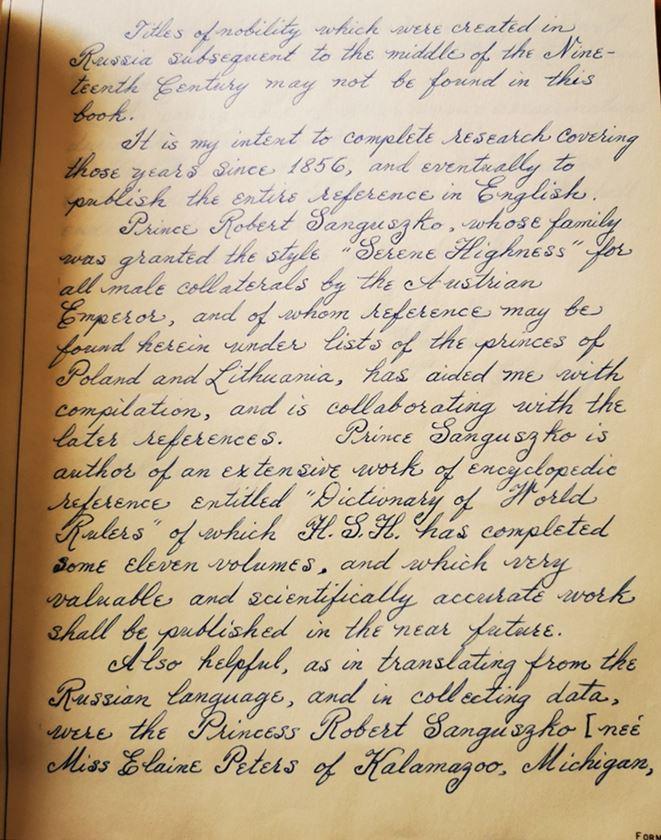 Titles of nobility which were created in
Russia subsequent to the middle of the Nine-
teenth Century may not be found in this
book.
It is my intent to complete research covering
those years since 1856, and eventually to
publish the entire reference in English.
Prince Robert Sanguszko, whose family
was granted the style "Serene Highness" for
all male collaterals by the Austrian
Emperor, and of whom reference may be
found herein under lists of the princes of
Poland and Lithuania, has aided me with
compilation, and is collaborating with the
later references. Prince Sanguszko is
author of an extensive work of encyclopedic
reference entitled "Dictionary of World
Rulers" of which H.S.H. has completed
some eleven volumes, and which very
valuable and scientifically accurate work
shall be published in the near future.
Also helpful, as in translating from the
Russian language, and in collecting data,
were the Princess Robert Sanguszko [neé
Miss Elaine Peters of Kalamazoo, Michigan,